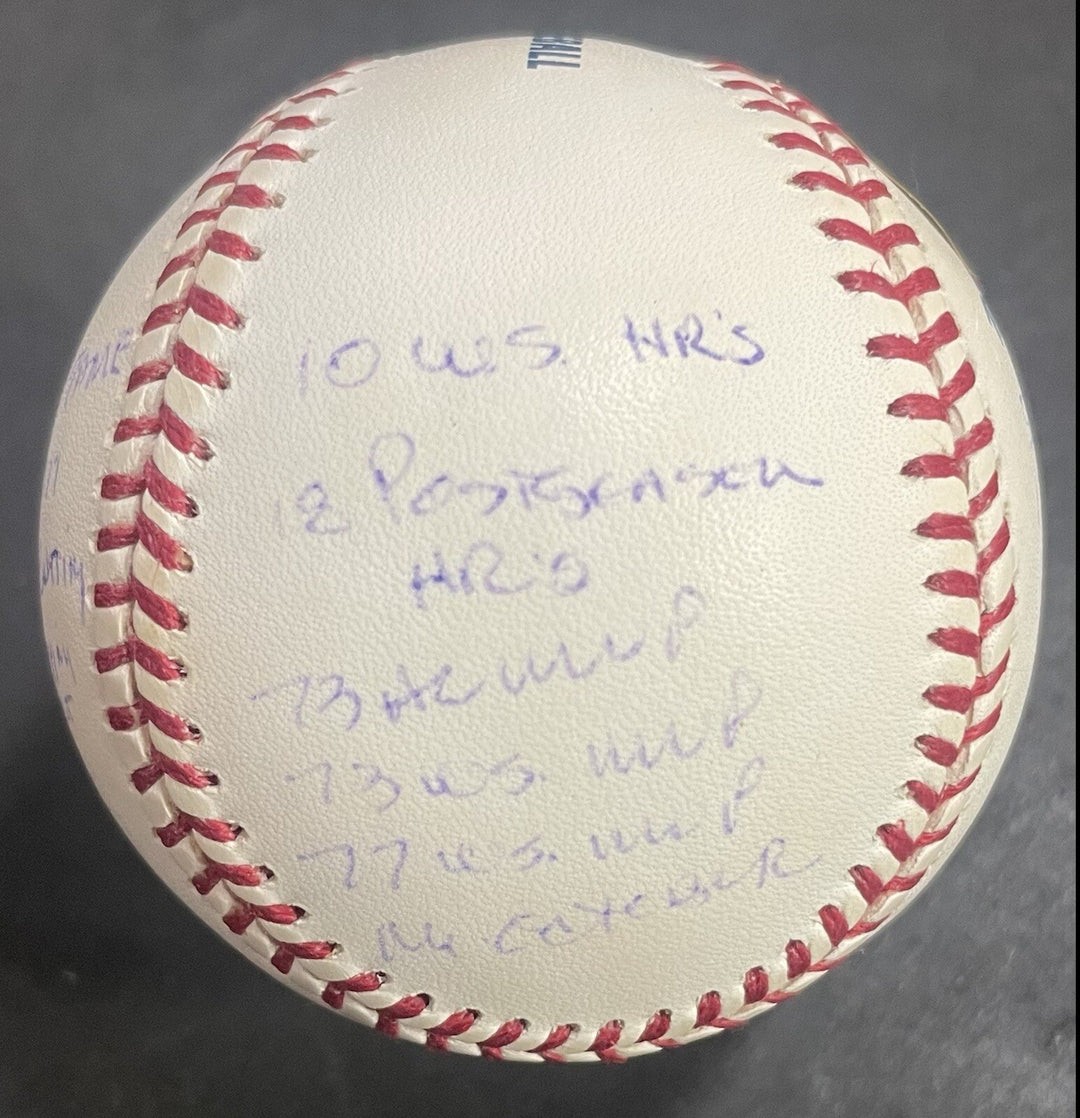 BALL
10 W.S. HR's
18 Postseason
HR's
73 AL MVP
73 W.S. MVP
77 W.S. MVP
Mr October